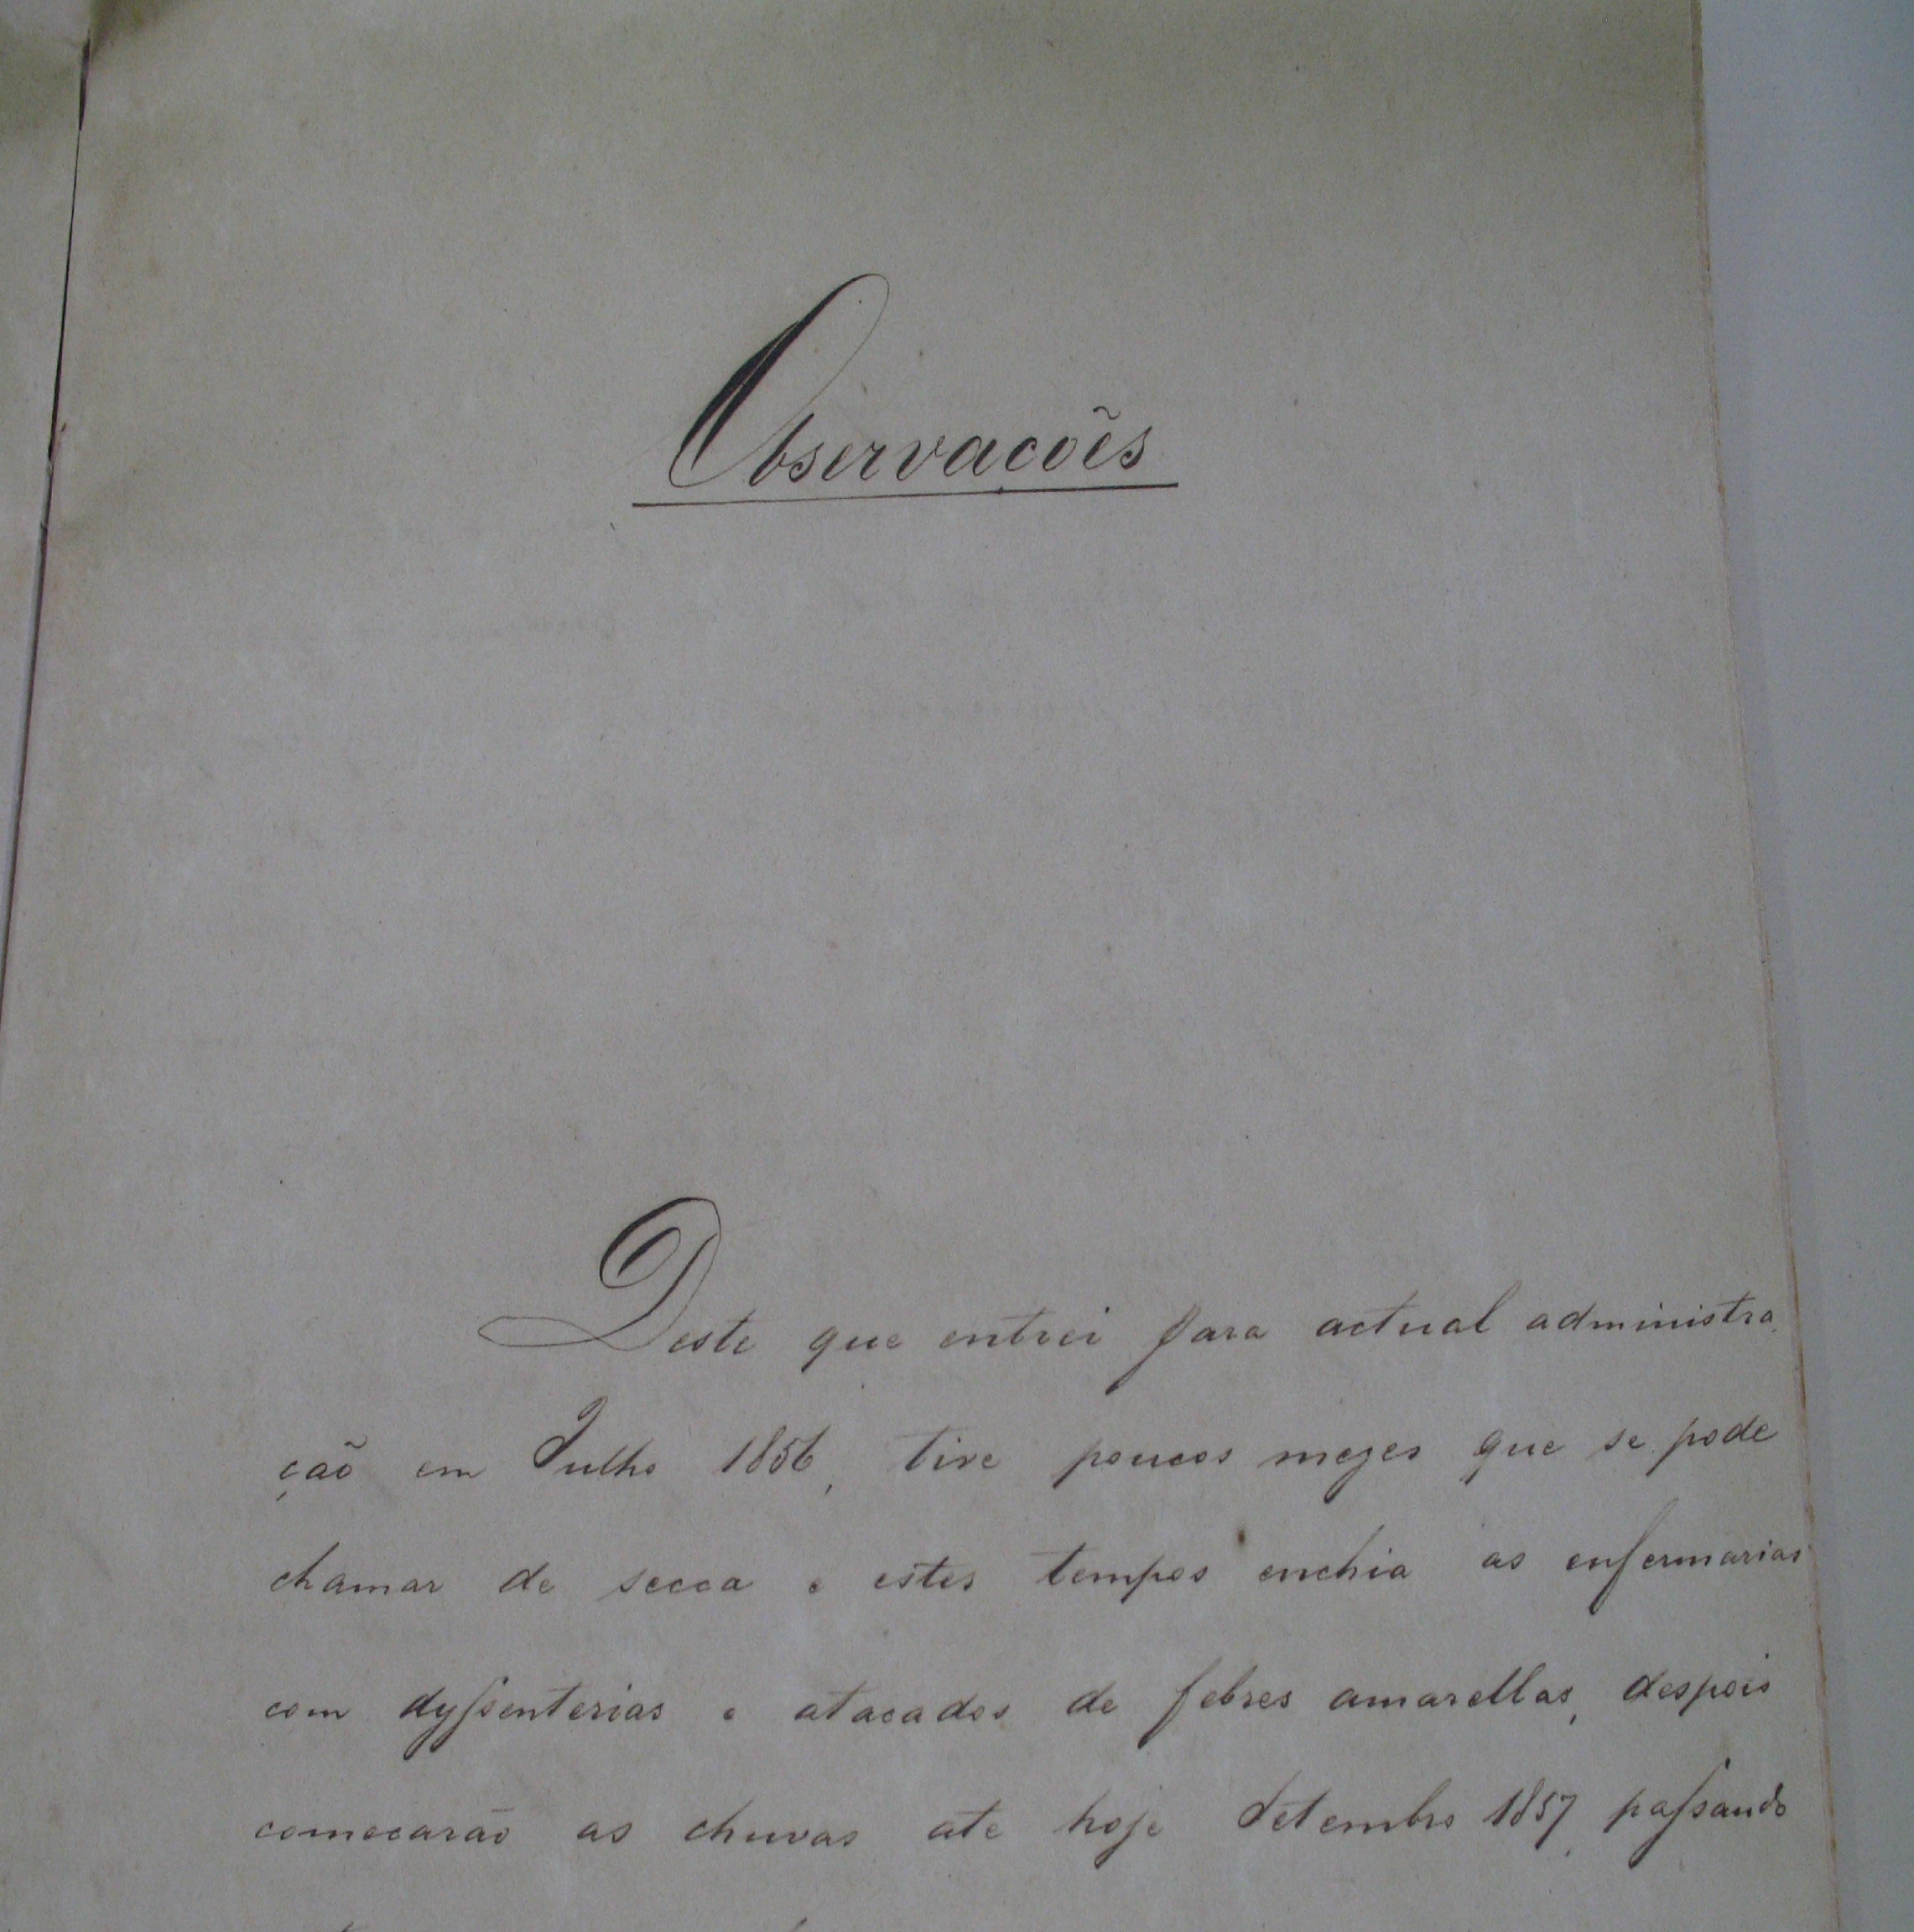 Observações
Deste que entrei para actual administra
ção em Julho 1856, tive poucos mezes que se pode
chamar de secca e estes tempos enchia as enfermarias
com dyſsenterias e atacados de febres amarellas, despois
comecarão as chuvas ate hoje Setembro 1857, paſsando